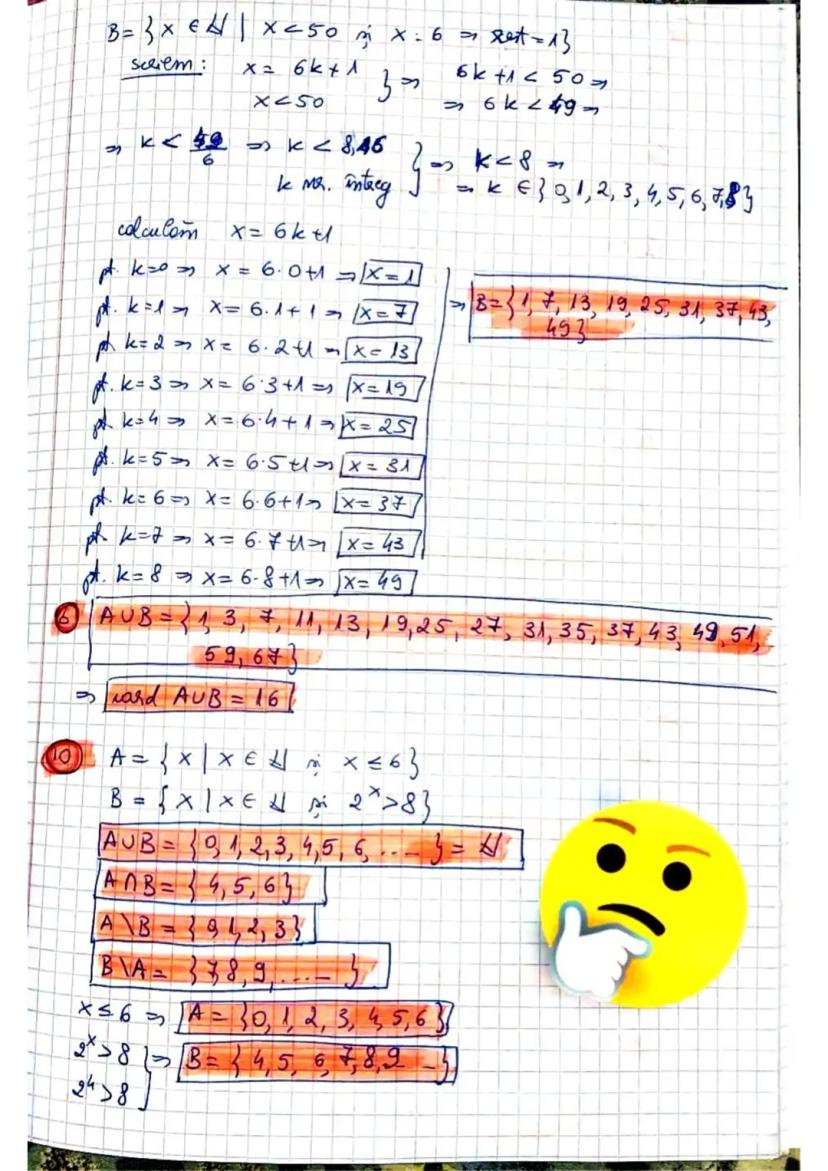 B = { x ∈ ℕ | x < 50 și x : 6 ⇒ rest = 1}
scriem : x = 6k+1 } ⇒ 6k+1 < 50 ⇒
x < 50 ⇒ 6k < 49 ⇒
⇒ k < 49/6 ⇒ k < 8,16 } ⇒ k < 8 ⇒
k nr. întreg ⇒ k ∈ {0,1,2,3,4,5,6,7,8}
calculăm x = 6k+1
pt. k=0 ⇒ x = 6·0+1 ⇒ x = 1
pt. k=1 ⇒ x = 6·1+1 ⇒ x = 7
⇒ B = {1, 7, 13, 19, 25, 31, 37, 43,
49}
pt. k=2 ⇒ x = 6·2+1 ⇒ x = 13
pt. k=3 ⇒ x = 6·3+1 ⇒ x = 19
pt. k=4 ⇒ x = 6·4+1 ⇒ x = 25
pt. k=5 ⇒ x = 6·5+1 ⇒ x = 31
pt. k=6 ⇒ x = 6·6+1 ⇒ x = 37
pt. k=7 ⇒ x = 6·7+1 ⇒ x = 43
pt. k=8 ⇒ x = 6·8+1 ⇒ x = 49
A∪B = {1, 3, 7, 11, 13, 19, 25, 27, 31, 35, 37, 43, 49, 51,
59, 67}
⇒ card A∪B = 16
10 A = { x | x ∈ ℕ și x ≤ 6}
B = { x | x ∈ ℕ și 2^x > 8}
A∪B = {0,1,2,3,4,5,6, .... } = ℕ
A∩B = {4,5,6}
A \ B = {0,1,2,3}
B \ A = {7,8,9, ..... }
x ≤ 6 ⇒ A = {0, 1, 2, 3, 4, 5, 6}
2^x > 8 } ⇒ B = {4, 5, 6, 7, 8, 9 ...}
2^4 > 8